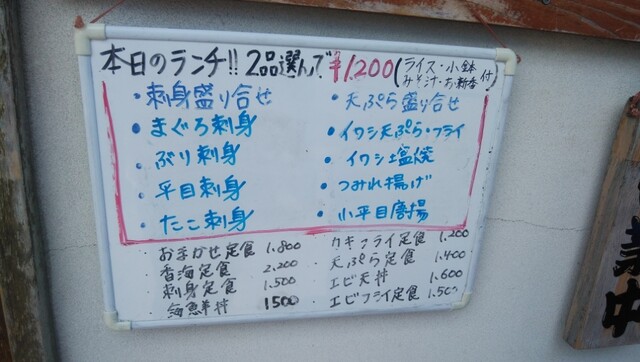 本日のランチ!! 2品選んで ¥1,200 (ライス・小鉢 みそ汁・お新香付)
・刺身盛り合せ ・天ぷら盛り合せ
・まぐろ刺身 ・イワシ天ぷら・フライ
・ぶり刺身 ・イワシ塩焼
・平目刺身 ・つみれ揚げ
・たこ刺身 ・小平目唐揚
・おまかせ定食 1.800 ・カキフライ定食 1.200
・香海定食 2,200 ・天ぷら定食 1.400
・刺身定食 1.500 ・エビ天丼 1.600
・海鮮丼 1500 ・エビフライ定食 1.500
業中